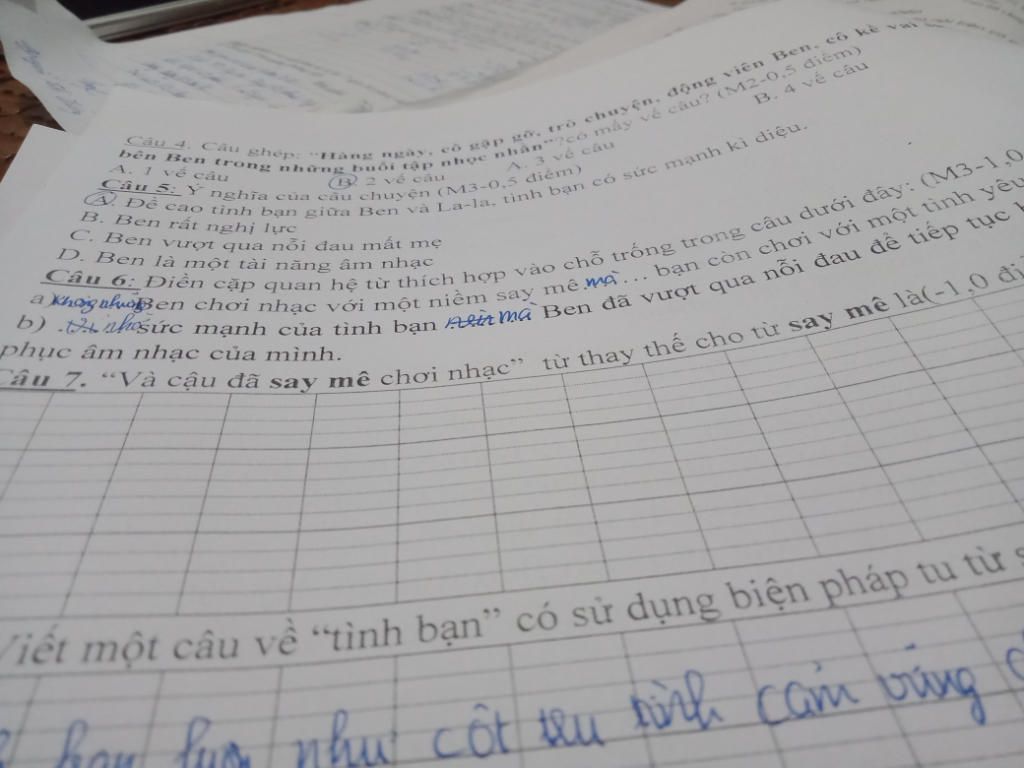 Câu 4. Câu ghép: "Hàng ngày, cô gặp gỡ, trò chuyện, động viên Ben, cô kề vai
bên Ben trong những buổi tập nhọc nhằn"?có mấy vế câu? (M2-0,5 điểm)
A. 1 vế câu B. 2 vế câu A. 3 vế câu B. 4 vế câu
Câu 5: Ý nghĩa của câu chuyện (M3-0,5 điểm)
A. Đề cao tình bạn giữa Ben và La-la, tình bạn có sức mạnh kì diệu.
B. Ben rất nghị lực
C. Ben vượt qua nỗi đau mất mẹ
D. Ben là một tài năng âm nhạc
Câu 6: Điền cặp quan hệ từ thích hợp vào chỗ trống trong câu dưới đây: (M3-1,0
a) không những Ben chơi nhạc với một niềm say mê mà ... bạn còn chơi với một tình yêu
b) sức mạnh của tình bạn mà Ben đã vượt qua nỗi đau để tiếp tục
phục âm nhạc của mình.
Câu 7. "Và cậu đã say mê chơi nhạc" từ thay thế cho từ say mê là(-1,0
Viết một câu về "tình bạn" có sử dụng biện pháp tu từ
như cột tình cảm vững